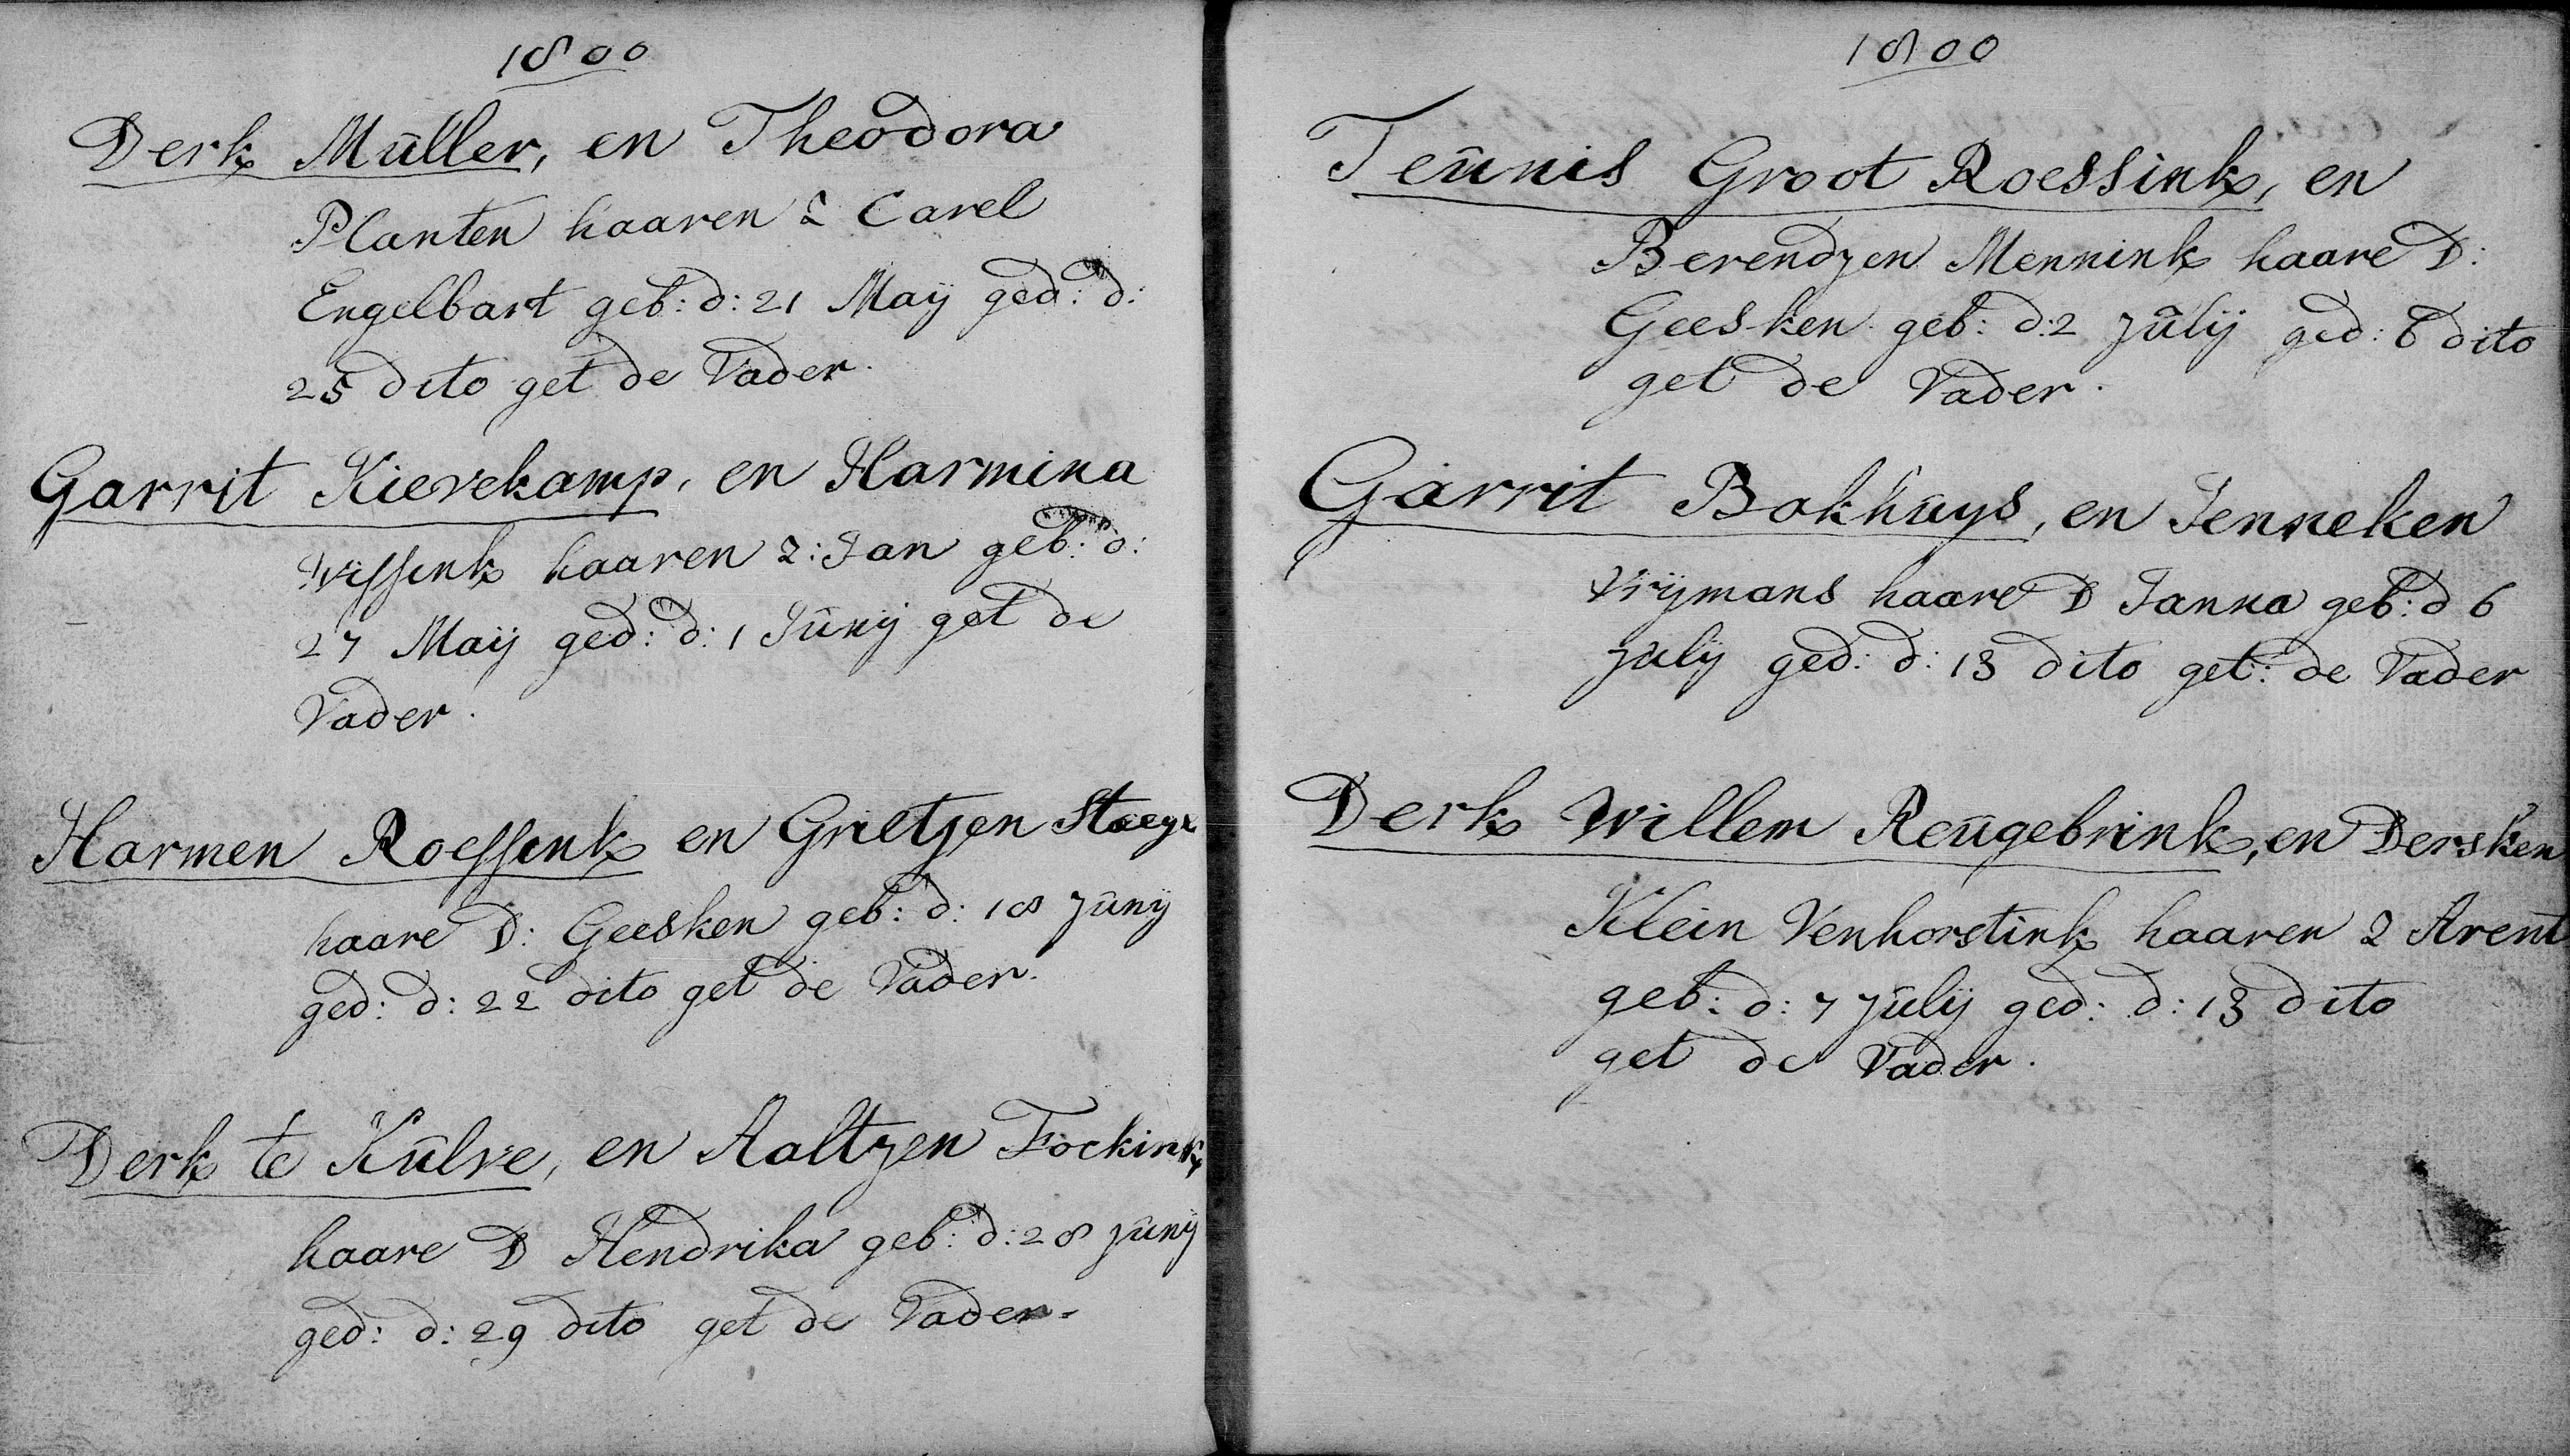 1800
Derk Müller, en Theodora
Planten haaren Z Carel
Engelbart geb: d: 21 Maij ged: d:
25 dito get de Vader.
Garrit Kievekamp, en Harmina
Wissink haaren Z: Jan geb: d:
27 Maij ged: d: 1 Junij get de
Vader.
Harmen Roessink en Grietjen
haare D: Geesken geb: d: 18 Junij
ged: d: 22 dito get de Vader.
Derk te Kulve, en Aaltjen Fockink
haare D Hendrika geb: d: 28 Junij
ged: d: 29 dito get de Vader.
1800
Teunis Groot Roessink, en
Berendjen Mennink haare D:
Geesken geb: d: 2 Julij ged: 6 dito
get de Vader.
Garrit Bokhuys, en Jenneken
Vrijmans haare D Janna geb: d 6
Julij ged: d: 13 dito get: de Vader
Derk Willem Reugebrink, en Dersken
Klein Venhorstink haaren Z Arent
geb: d: 7 Julij ged: d: 13 dito
get de Vader.